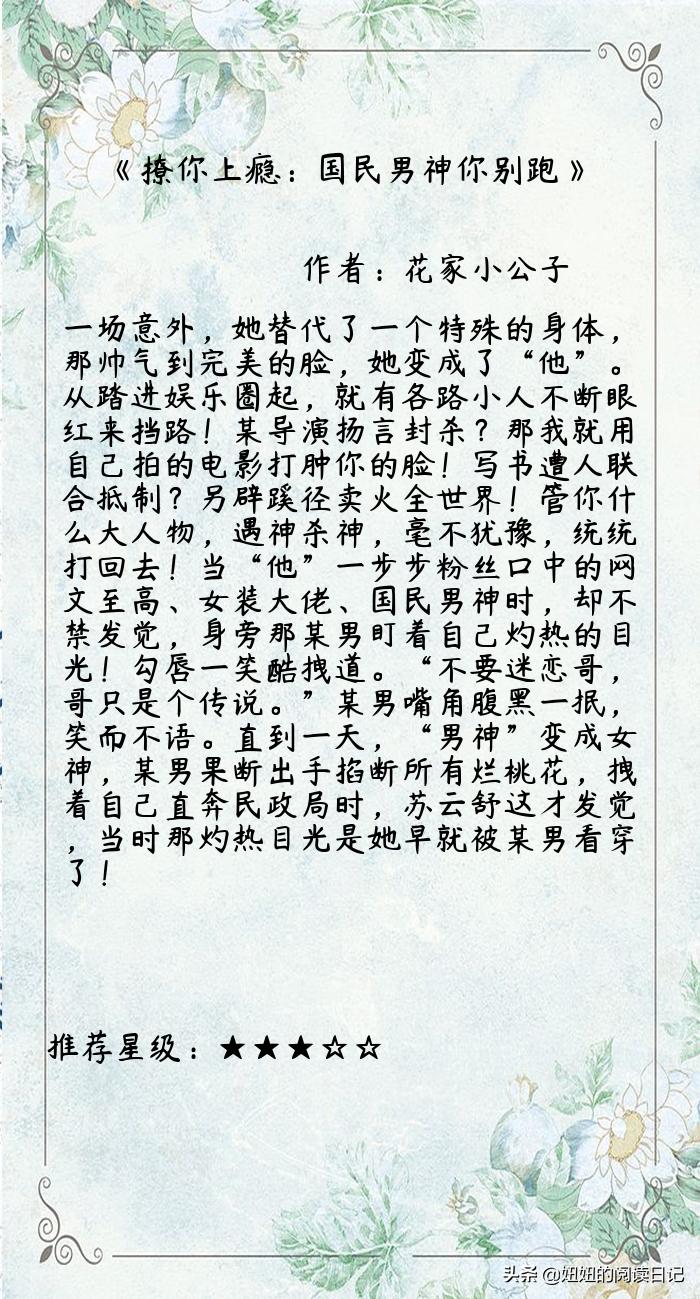 《撩你上瘾：国民男神你别跑》
作者：花家小公子
一场意外，她替代了一个特殊的身体，
那帅气到完美的脸，她变成了“他”。
从踏进娱乐圈起，就有各路小人不断眼
红来挡路！某导演扬言封杀？那我就用
自己拍的电影打肿你的脸！写书遭人联
合抵制？另辟蹊径卖火全世界！管你什
么大人物，遇神杀神，毫不犹豫，统统
打回去！当“他”一步步粉丝口中的网
文至高、女装大佬、国民男神时，却不
禁发觉，身旁那某男盯着自己灼热的目
光！勾唇一笑酷拽道。“不要迷恋哥，
哥只是个传说。”某男嘴角腹黑一抿，
笑而不语。直到一天，“男神”变成女
神，某男果断出手掐断所有烂桃花，拽
着自己直奔民政局时，苏云舒这才发觉
，当时那灼热目光是她早就被某男看穿
了！
推荐星级：★★★☆☆
头条 @妞妞的阅读日记